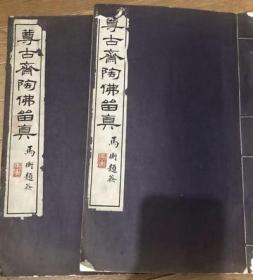 尊古斋陶佛留真
馬衡題簽
尊古齋陶佛留真
馬衡題簽